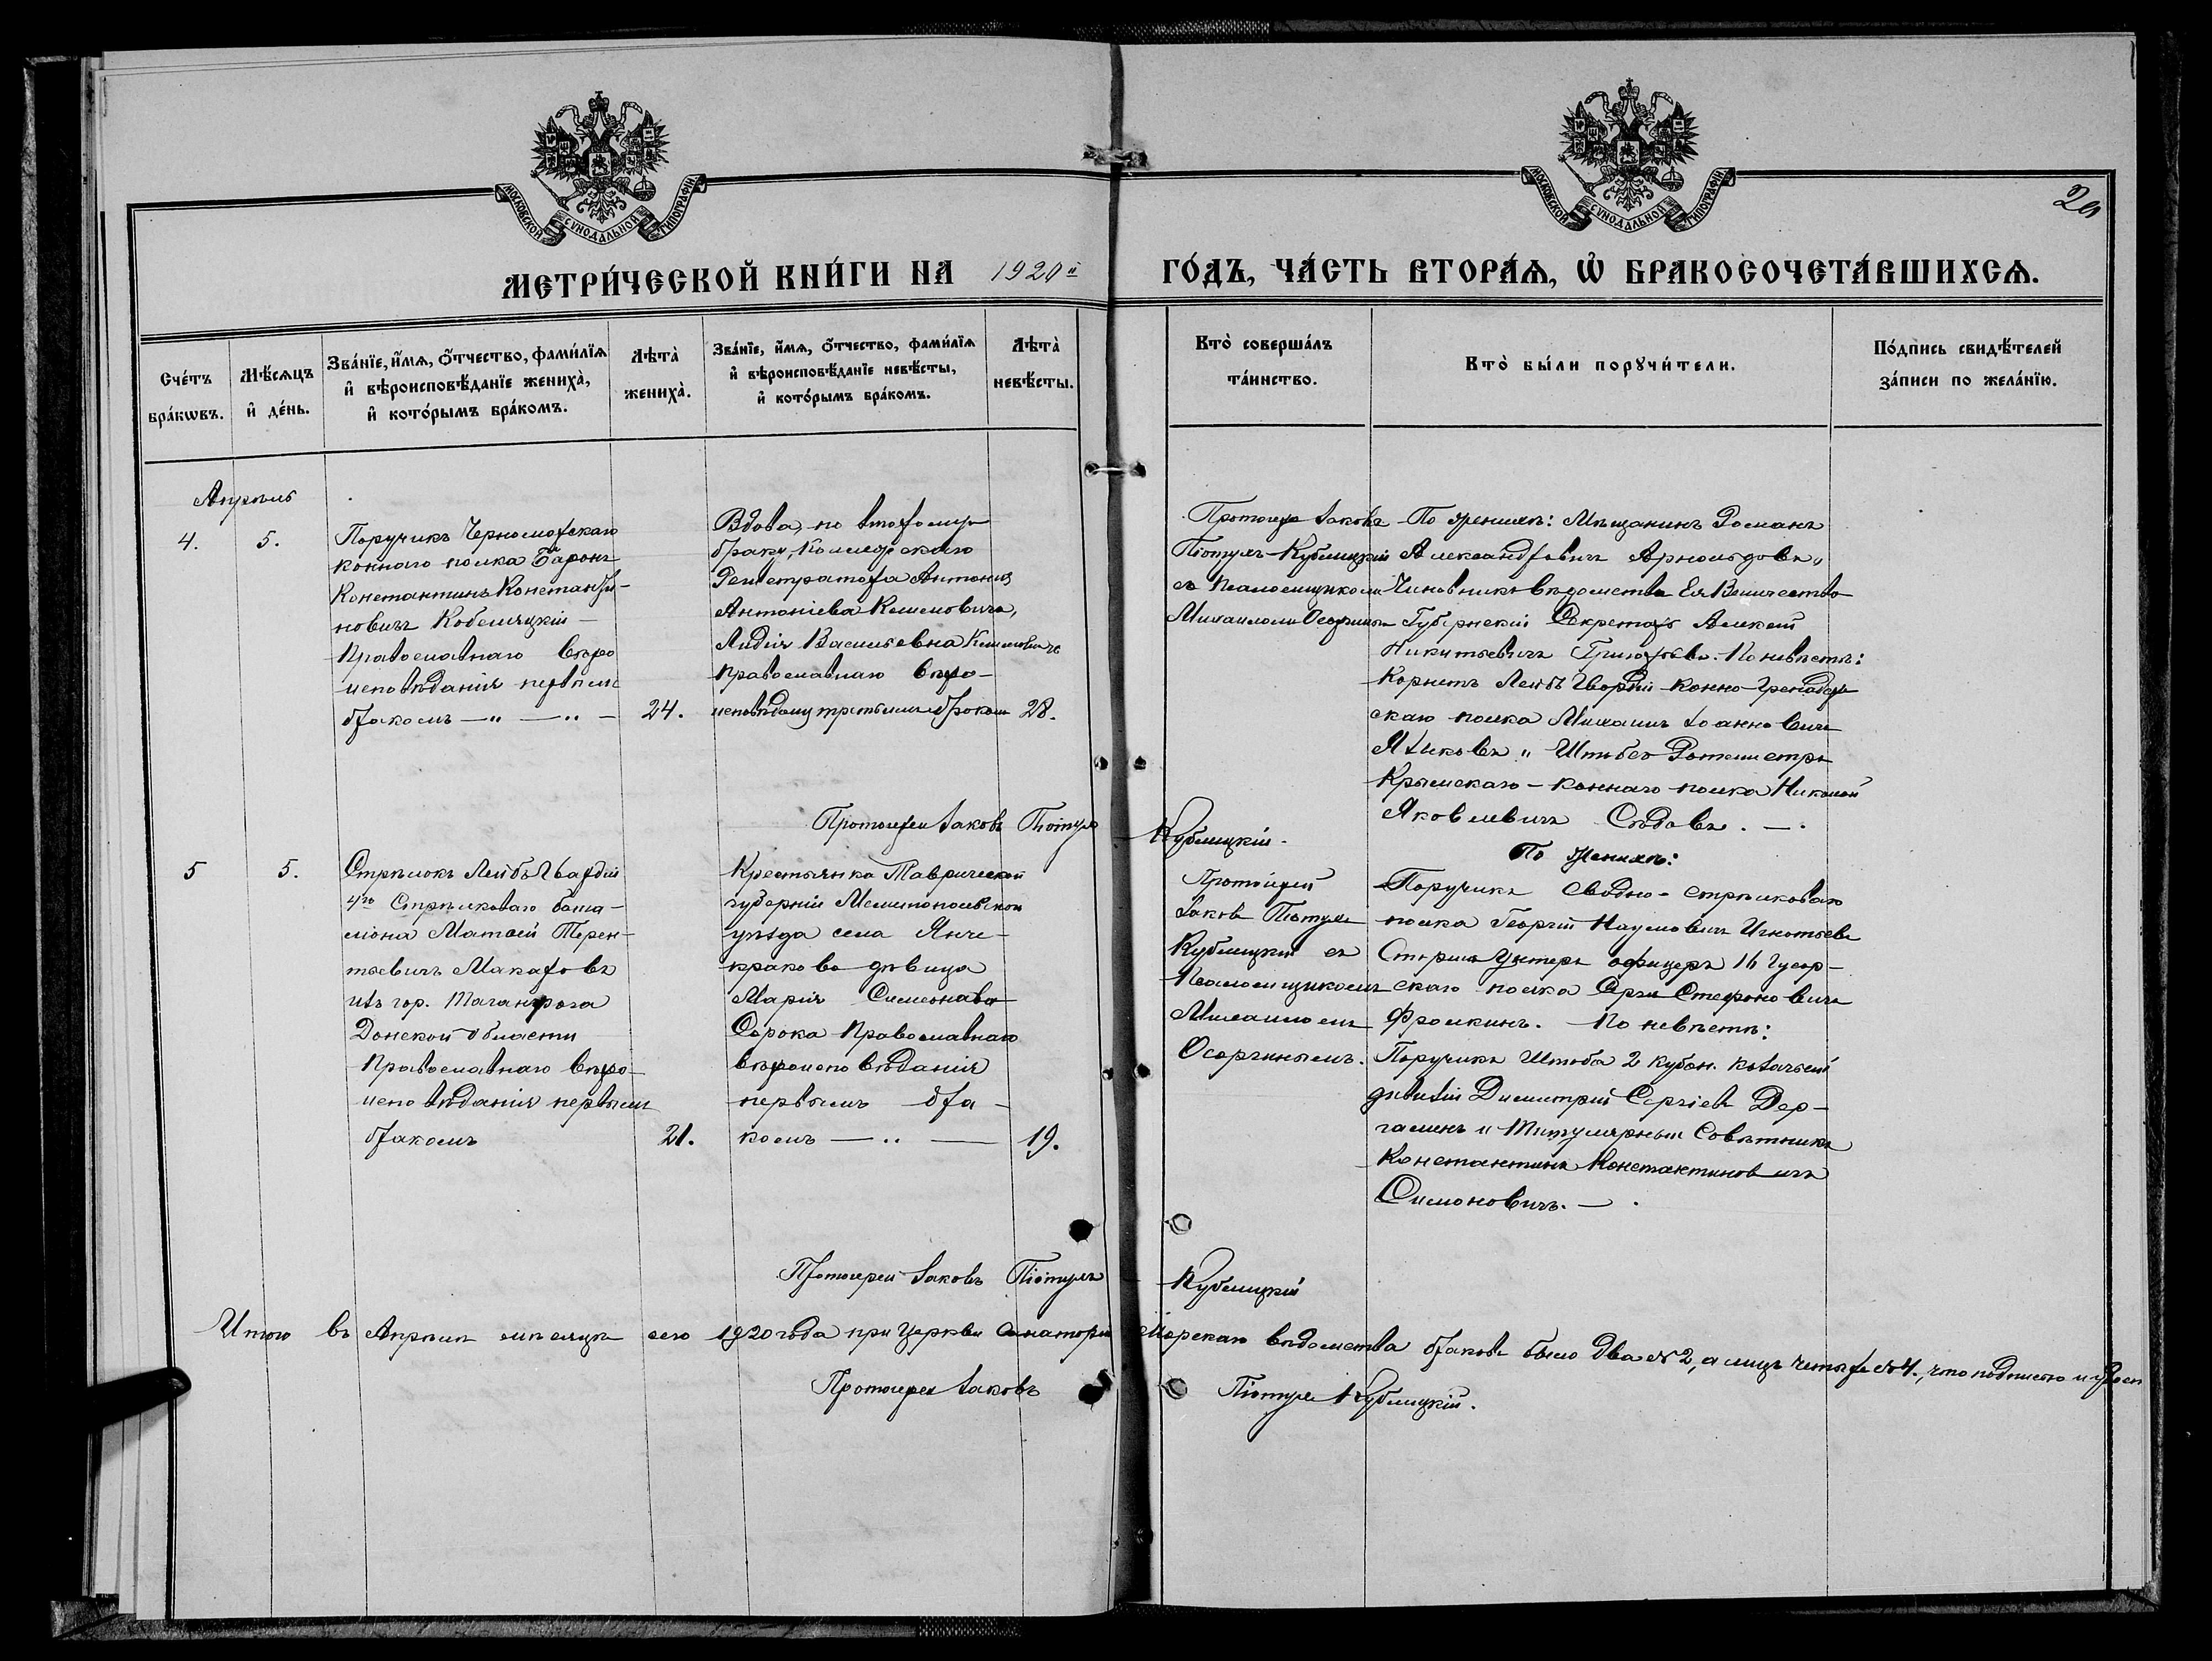 МОСКОВСКОЙ СѴНОДАЛЬНОЙ ТИПОГРАФІИ.
МОСКОВСКОЙ СѴНОДАЛЬНОЙ ТИПОГРАФІИ.
МЕТРИ́ЧЕСКОЙ КНИ́ГИ НА 1920й ГО́ДЪ, ЧА́СТЬ ВТОРА́Я, Ѿ БРАКОСОЧЕТА́ВШИХСЯ.
Сче́тъ бра́кωвъ.
Мѣ́сяцъ и҆ де́нь.
Зва́нїе, и҆́мя, ѻ҆́тчество, фами́лїя
и҆ вѣроисповѣ́данїе жениха̀,
и҆ кото́рымъ бра́комъ.
Лѣта̀ жениха̀.
Зва́нїе, и҆́мя, ѻ҆́тчество, фами́лїя
и҆ вѣроисповѣ́данїе невѣ́сты,
и҆ кото́рымъ бра́комъ.
Лѣта̀ невѣ́сты.
Кто̀ соверша́лъ
та́инство.
Кто̀ бы́ли порꙋчи́тели.
По́дпись свидѣ́телей
за́писи по жела́нїю.
Апрѣль
4.
5.
Поручикъ Черноморскаго
коннаго полка Баронъ
Константинъ Константи-
новичъ Кобеляцкій -
Православнаго вѣро
исповѣданія первымъ
бракомъ — " — " —
24.
Вдова, по второму
браку, Коллежскаго
Регистратора Антонія
Антоніева
Лидія Васильевна
православнаго вѣро-
третьимъ бракомъ
28.
Протоіерей Іаковъ
Піотухъ-Кублицкій
съ Псаломщикомъ
Михаиломъ
По женихѣ: Мѣщанинъ Романъ
Александровичъ Арнольдовъ,
Чиновникъ вѣдомства Ея Величества
Губернскій Секретарь Алексѣй
Никитьевичъ Григорьевъ. По невѣстѣ:
Корнетъ Лейбъ Гвардіи Конно-Гренадер
скаго полка Михаилъ Іоанновичъ
Языковъ " Штабсъ Ротмистръ
Крымскаго - коннаго полка Николай
Яковлевичъ Сѣдовъ. — .
Протоіерей Іаковъ Піотухъ Кублицкій.
5
5.
Стрѣлокъ Лейбъ Гвардіи
4го Стрѣлковаго бата-
ліона Матвей Терен-
тьевичъ Макаровъ
изъ гор. Таганрога
Донской Области
Православнаго вѣро-
исповѣданія первымъ
бракомъ
21.
Крестьянка Таврической
губерніи Мелитопольскаго
уѣзда села Янче-
крака дѣвица
Марія Симеонова
Сорока Православнаго
вѣроисповѣданія
первымъ бра-
комъ — " —
19.
Протоіерей
Іаковъ Піотухъ
Кублицкій съ
Псаломщикомъ
Михаиломъ
Осоргинымъ.
По женихѣ:
Поручикъ Сводно-стрѣлковаго
полка Георгій Наумовичъ Игнатьевъ
Старшій Унтеръ офицеръ 16 Гусар-
скаго полка Стефановичъ
Фролкинъ. По невѣстѣ:
Поручикъ Штаба 2 кубан. казачьей
дивизіи Димитрій Сергіевъ Дер-
и Титулярный Совѣтникъ
Константинъ Константиновичъ
Симоновичъ. — .
Протоіерей Іаковъ Піотухъ Кублицкій
Итого въ Апрѣлѣ мѣсяцѣ сего 1920 года при Церкви Санаторіи Морскаго вѣдомства браковъ было два № 2, а лицъ четыре № 4., что подписью и удост
Протоіерей Іаковъ Піотухъ Кублицкій.